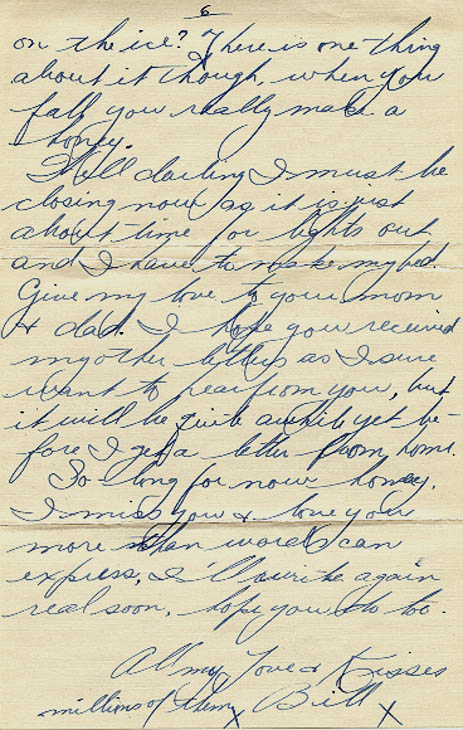 6
on the ice? There is one thing
about it though, when you
fall you really make a
honey.
Well darling I must be
closing now as it is just
about time for lights out
and I have to make my bed.
Give my love to your mom
& dad. I hope you received
my other letters as I sure
want to hear from you, but
it will be quite awhile yet be-
fore I get a letter from home.
So long for now honey,
I miss you & love you
more than words can
express, I'll write again
real soon, hope you do too.
All my Love & Kisses
millions of them x Bill x